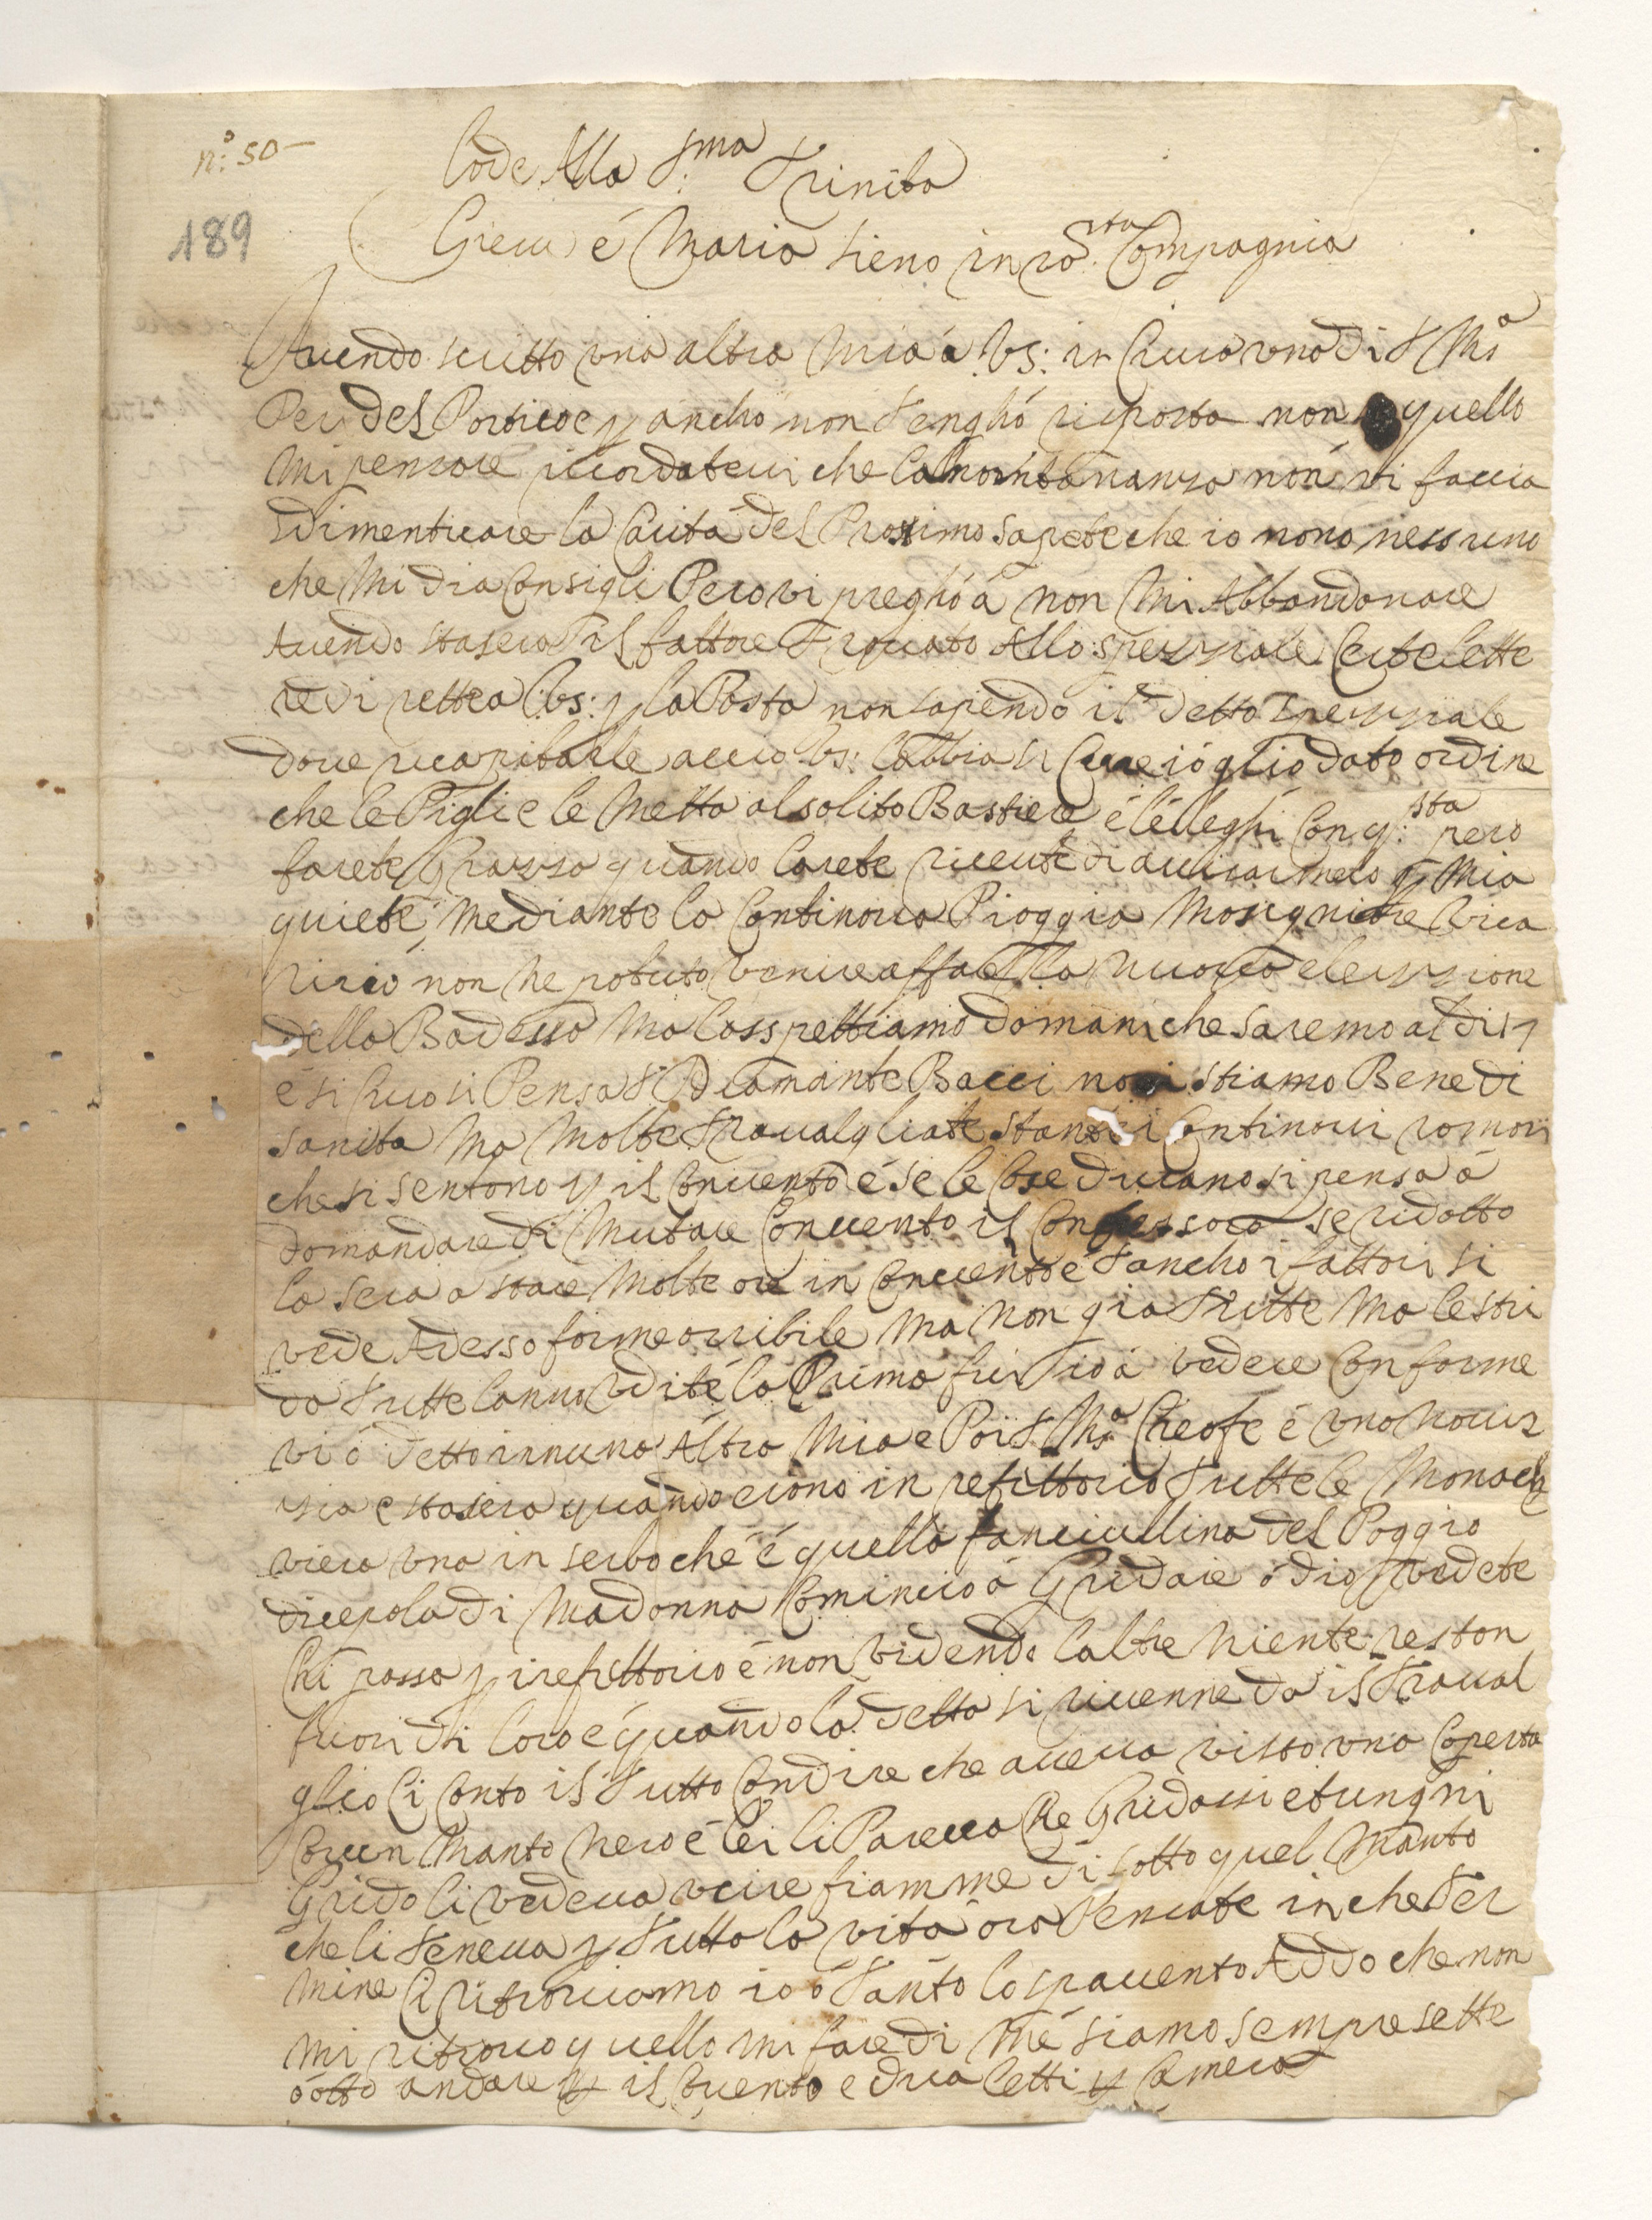 n.° 50 –
189
Lode Alla S.ma Trinita
Giesu é Maria sieno in vo.sta Compagnia
Avendo scritto una altra mia á VS: in Cuia una di S Ma
Per del Portico e p ancho non tengho risposta non quello
mi pensare ricordatevi che la lontananza non vi faccia
dimenticare la Carita del Prossimo sapete che io nono nessuno
che mi dia Consigli Pero vi pregho á non mi Abbandonare
Avendo stasera il fattore trovato Allo spezziale Certe lette
re di rette a VS: p la Posta non sapendo il detto Spezziale
dove recapitarle accio VS: labbia si Cure io glio dato ordine
che le Pigli e le Metta al solito Bastiere é lélleghi Con q:sta pero
farete Grazzia quando larete ricevute di avvisarmelo p mia
quiete, mediante la Continova Pioggia Monsignore Vica
rio non he potuto venire affare la nuova elezzione
della Badessa Ma lasspettiamo domani che saremo al di 17
é si Cuosi Pensa S Diamante Bacci noi stiamo Bene di
sanita Ma Molte travalgliate stante i Continovi romori
che si sentono p il Convento é se le Cose durano si pensa á
domandare di Mutare Convento il Confessoro se ridotto
la sera a stare Molte ore in Convento é tancho i fattori si
vede Adesso forme orribile Ma non gia tutte Ma le stri
da tutte lanno Udite la Prima fu tio á vedere Conforme
vi ó detto innuna Altra Mia e Poi S Ma Cleofe é una noviz
zia e stasera quando eciono in refittorio tutte le Monache
viera una in serbo ché é quella fanciullina del Poggio
dicepola di Madonna Comincio á Gridare ó dio vedete
Chi passa p irefittorio é non vedendo laltre niente reston
fuori di loro e quando la detta si rivenne da il traval
glio Ci Conto il tutto Con dire che aveva visto una Coperta
Con un Manto nero é lei li Pareva Che Gridassi etungni
Grido li vedeva usire fiamme di sotto quel Manto
che li teneva p tutta la vita óra Pensate in che ter
mine Ci ritroviamo io ó tanto lo spavento Addo che non
mi ritrovo quello mi fare di Mé siamo sempre sette
ó otto andare p il Convento e dua letti p Camera